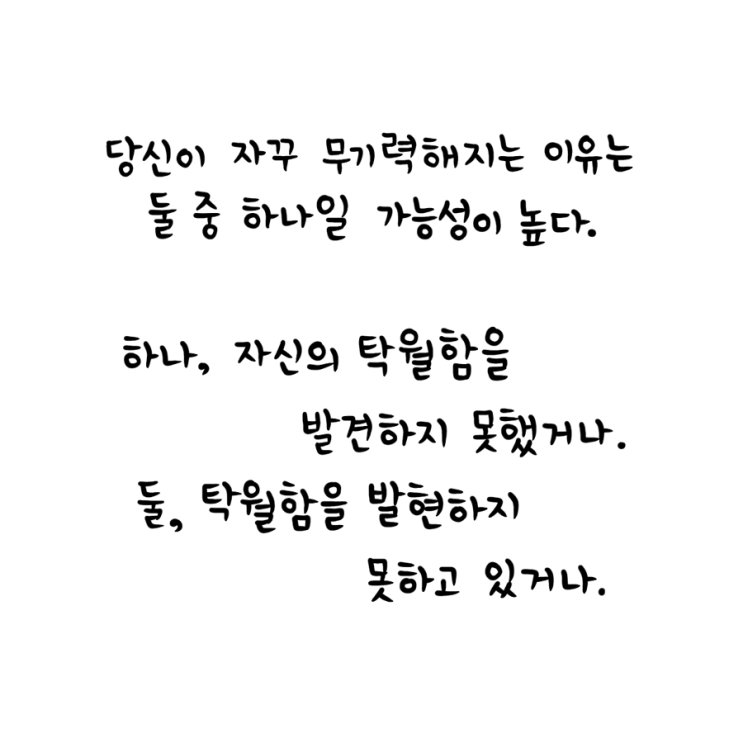 당신이 자꾸 무기력해지는 이유는
둘 중 하나일 가능성이 높다.
하나, 자신의 탁월함을
발견하지 못했거나.
둘, 탁월함을 발현하지
못하고 있거나.